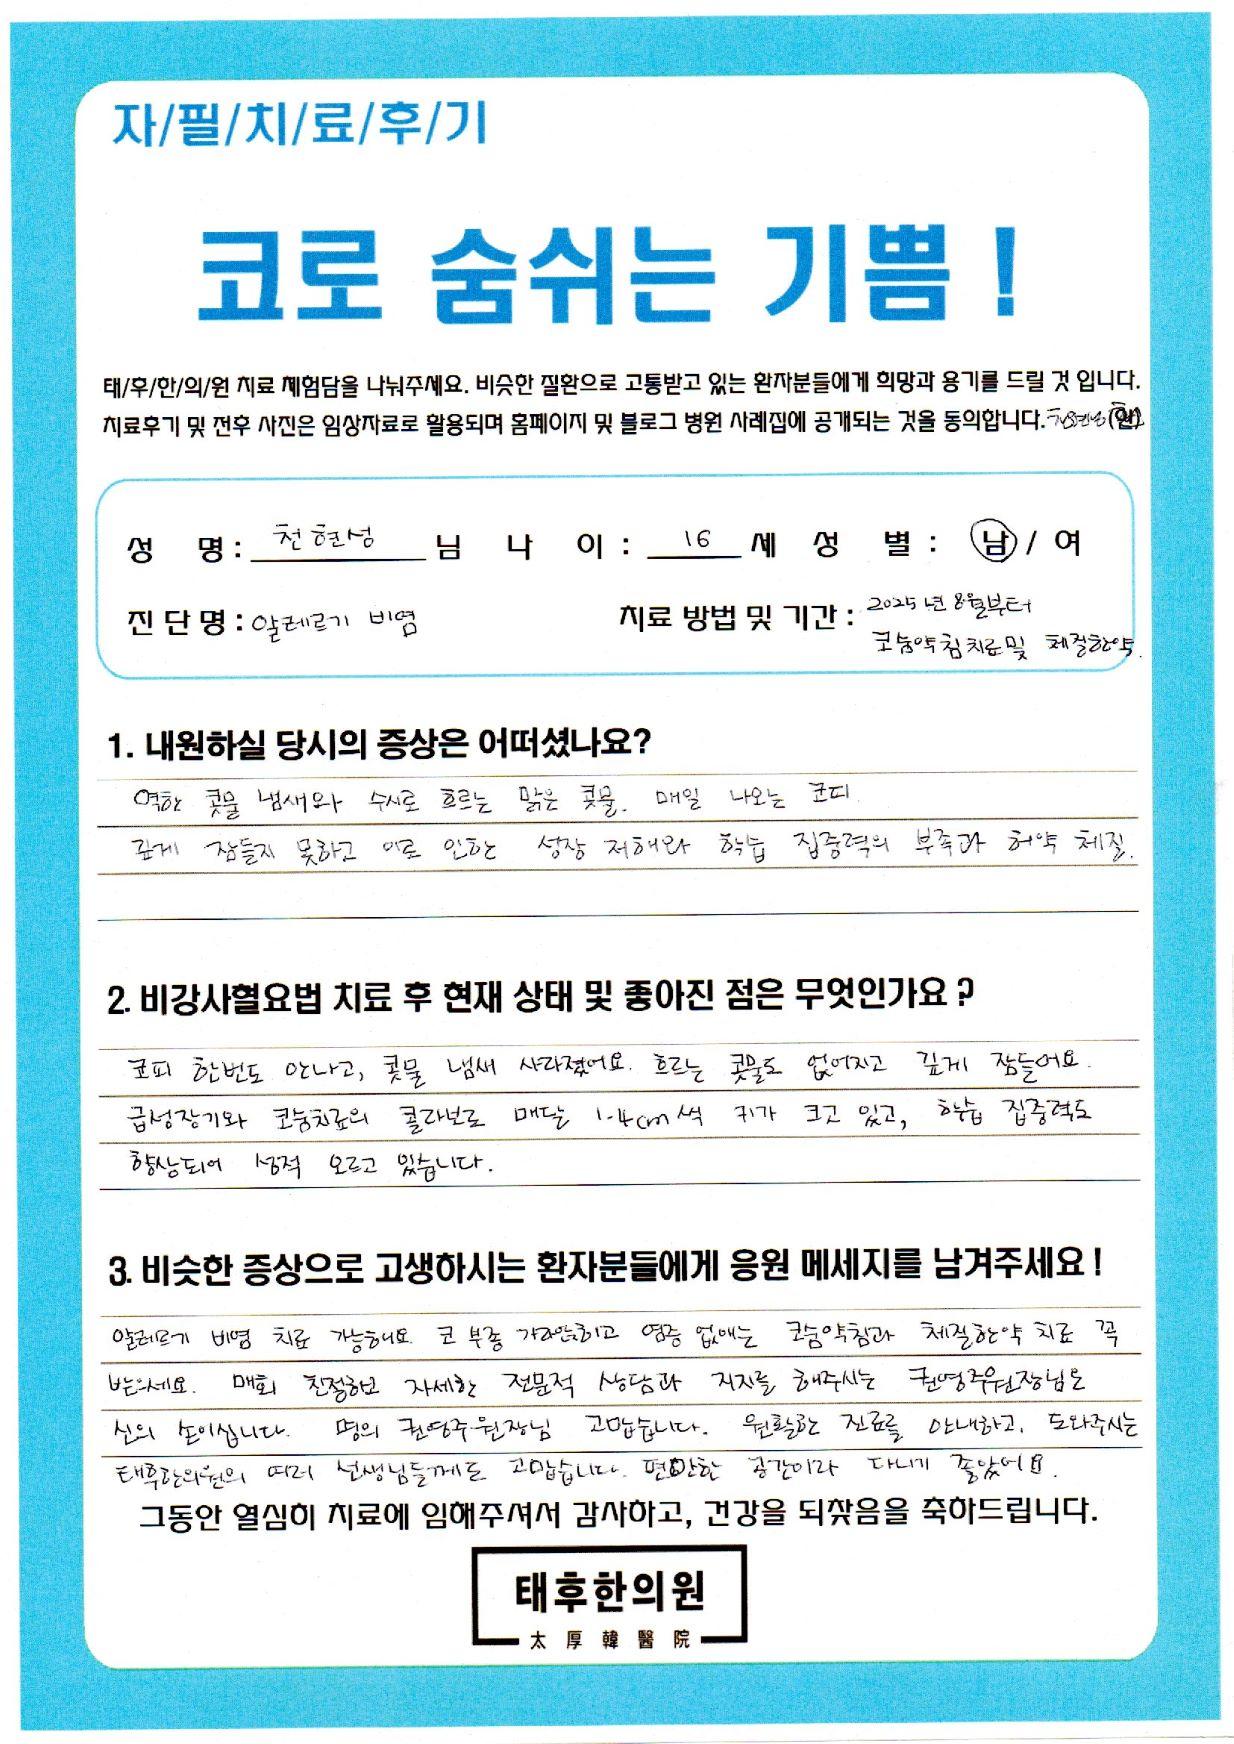 자/필/치/료/후/기
코로 숨쉬는 기쁨 !
태/후/한/의/원 치료 체험담을 나눠주세요. 비슷한 질환으로 고통받고 있는 환자분들에게 희망과 용기를 드릴 것 입니다.
치료후기 및 전후 사진은 임상자료로 활용되며 홈페이지 및 블로그 병원 사례집에 공개되는 것을 동의합니다.
성 명 : 천현성 님 나 이 : 16 세 성 별 : 남 / 여
진 단 명 : 알레르기 비염 치료 방법 및 기간 : 2025년 8월부터
코숨약침치료및 체질한약.
1. 내원하실 당시의 증상은 어떠셨나요?
역한 콧물 냄새와 수시로 흐르는 맑은 콧물. 매일 나오는 코피
깊게 잠들지 못하고 이로 인한 성장 저해와 학습 집중력의 부족과 허약 체질.
2. 비강사혈요법 치료 후 현재 상태 및 좋아진 점은 무엇인가요 ?
코피 한번도 안나고, 콧물 냄새 사라졌어요. 흐르는 콧물도 없어지고 깊게 잠들어요.
급성장기와 코숨치료의 콜라보로 매달 1.4cm씩 키가 크고 있고, 학습 집중력도
향상되어 성적 오르고 있습니다.
3. 비슷한 증상으로 고생하시는 환자분들에게 응원 메세지를 남겨주세요 !
알레르기 비염 치료 가능해요. 코 부종 가라앉히고 염증 없애는 코숨약침과 체질한약 치료 꼭
받으세요. 매회 친절하고 자세한 전문적 상담과 지지를 해주시는 권영주원장님은
신의 손이십니다. 명의 권영주원장님 고맙습니다. 원활한 진료를 안내하고, 도와주시는
태후한의원의 여러 선생님들께도 고맙습니다. 편안한 공간이라 다니기 좋았어요.
그동안 열심히 치료에 임해주셔서 감사하고, 건강을 되찾음을 축하드립니다.
태후한의원
太厚韓醫院